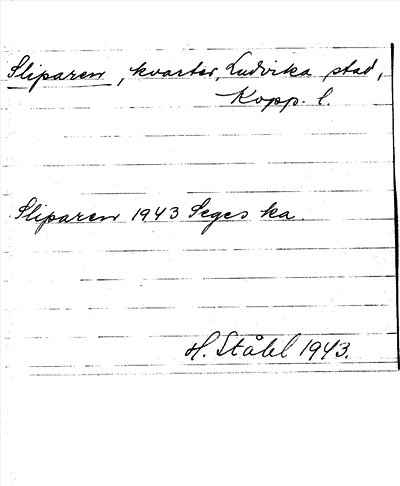 Sliparen, kvarter, Ludvika stad,
Kopp. l.
Sliparen 1943 Seges ka.
H. Ståhl 1943.